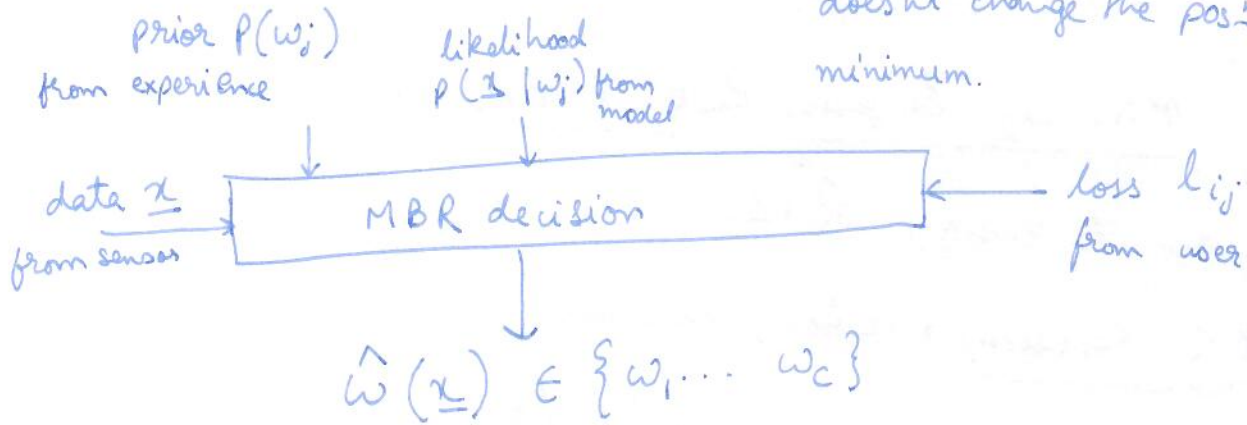 doesn't change the pos-
minimum.
prior P(ω_j)
from experience
likelihood
p(x | ω_j) from
model
data x
from sensor
MBR decision
loss l_ij
from user
ω̂(x) ∈ {ω_1 ... ω_c}